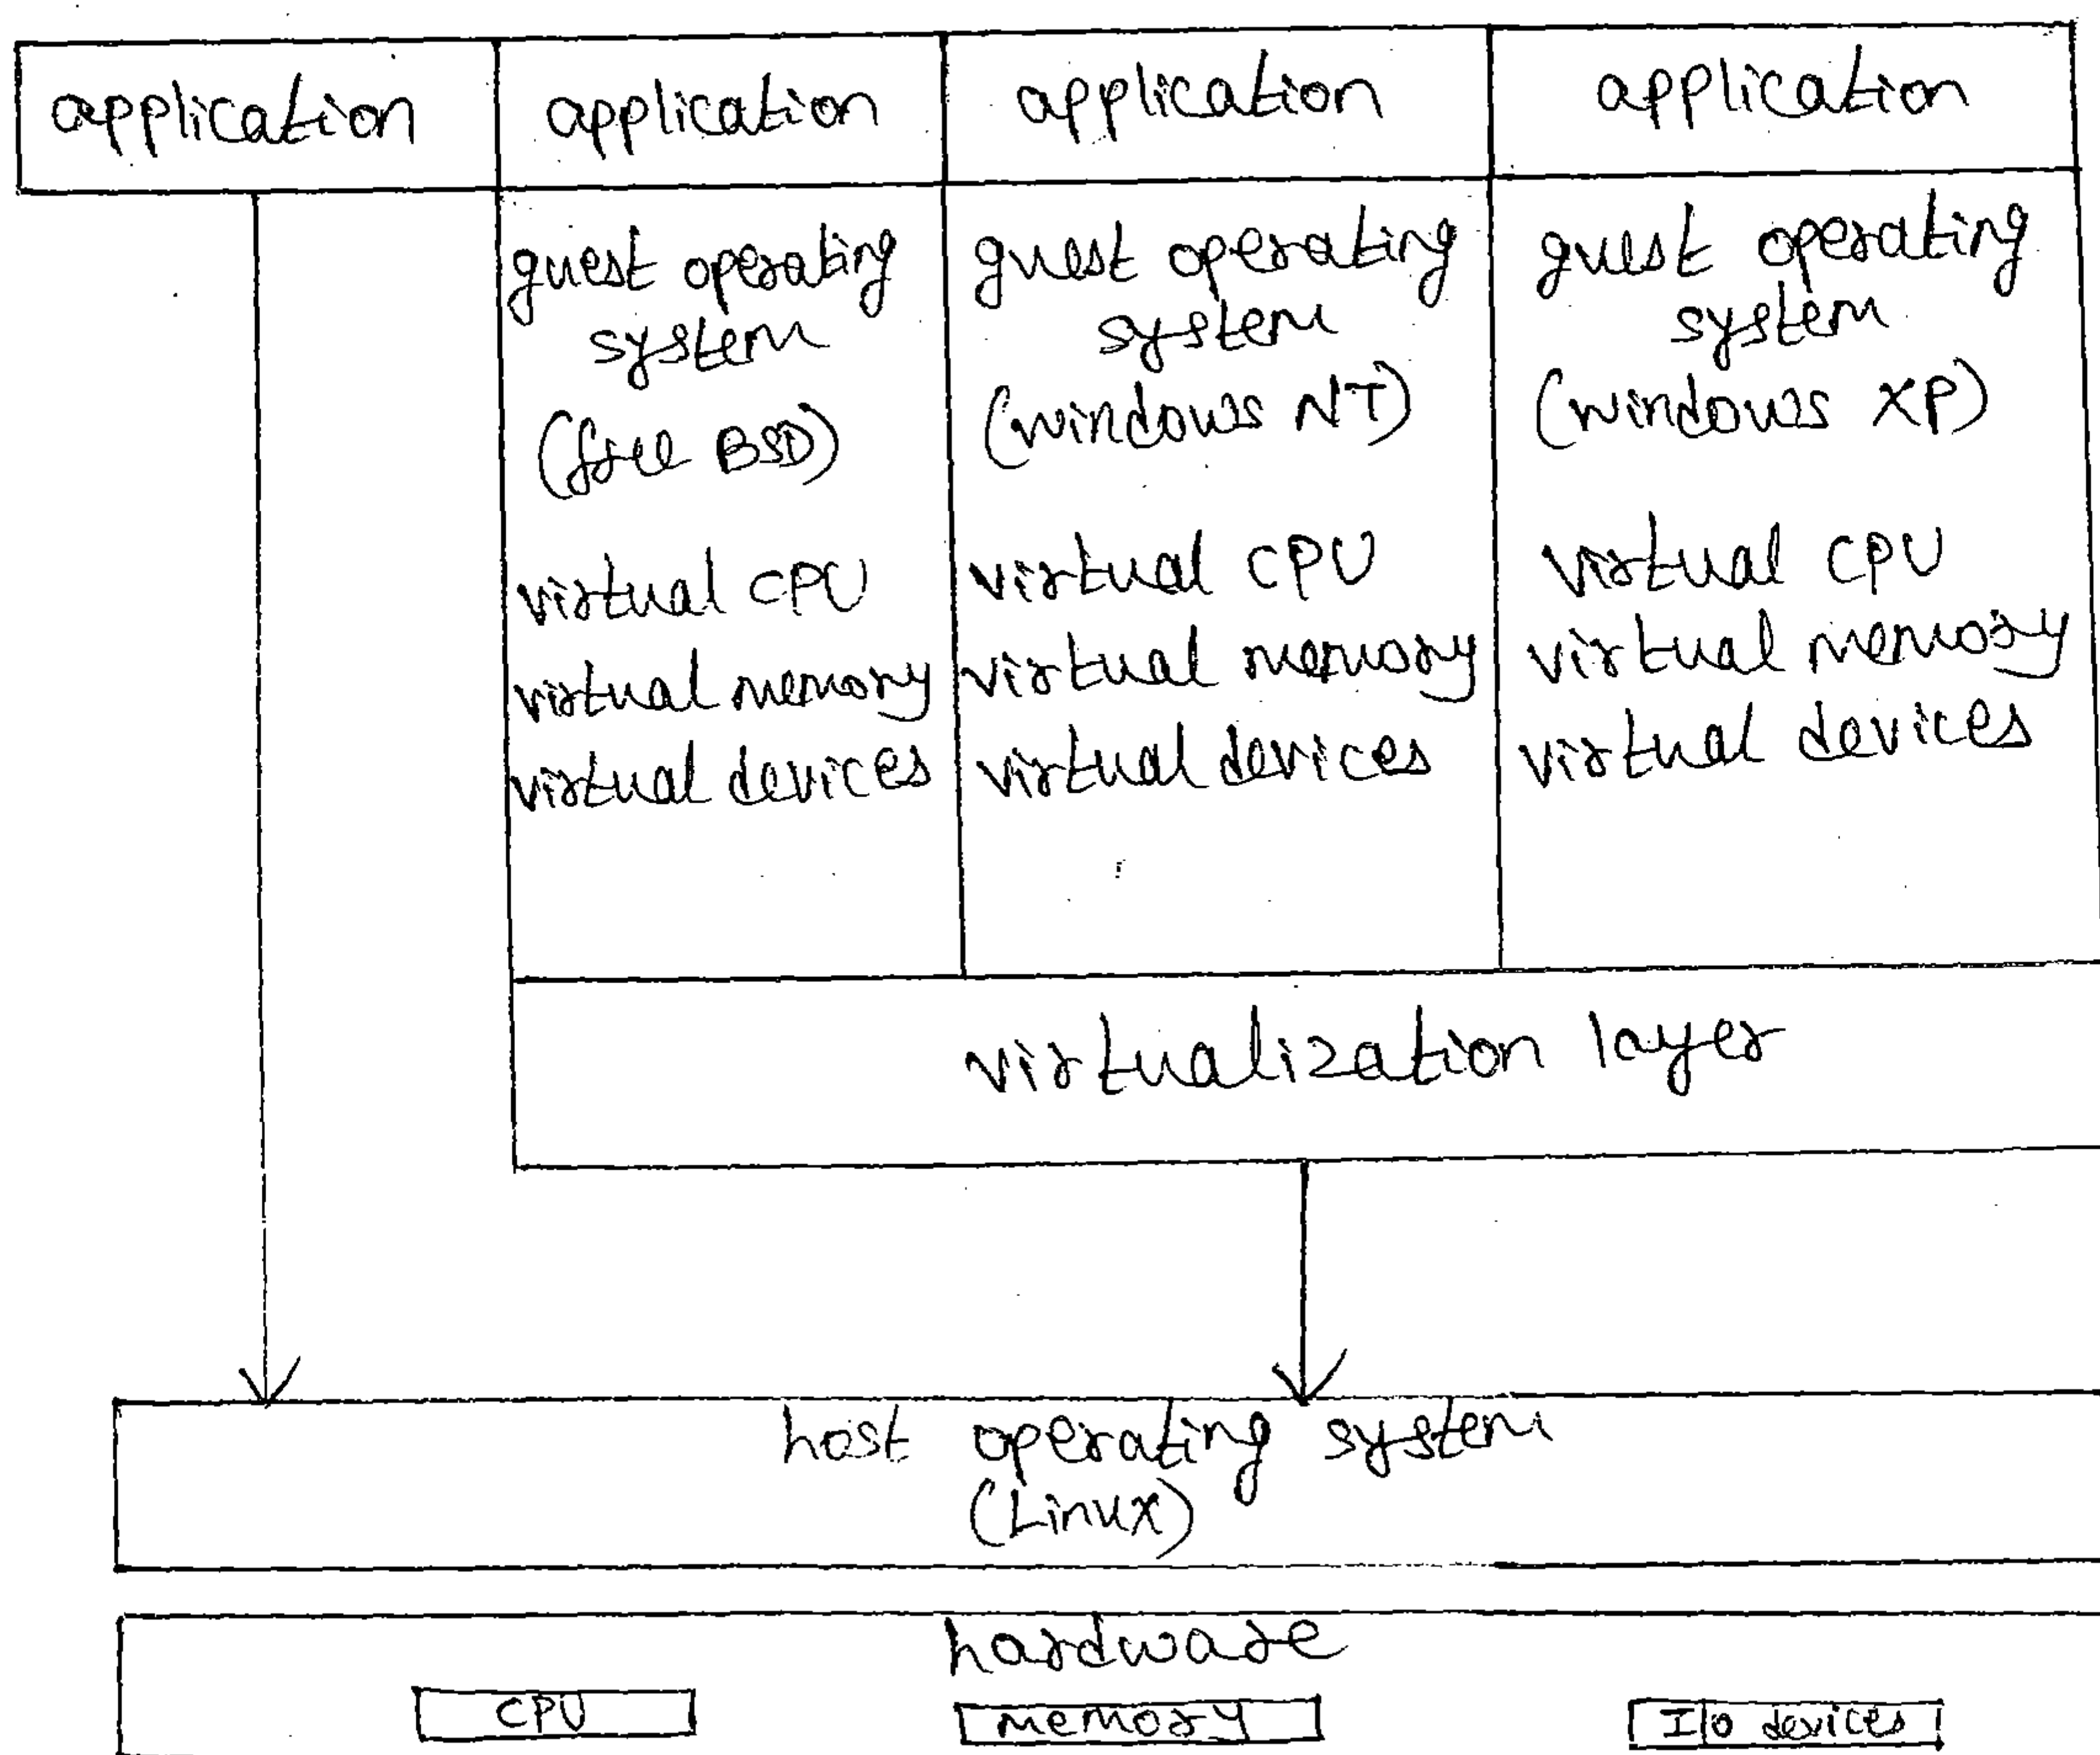 application
application
application
application
guest operating
system
(free BSD)
virtual CPU
virtual memory
virtual devices
guest operating
system
(windows NT)
virtual CPU
virtual memory
virtual devices
guest operating
system
(windows XP)
virtual CPU
virtual memory
virtual devices
virtualization layer
host operating system
(Linux)
hardware
CPU
memory
I/o devices